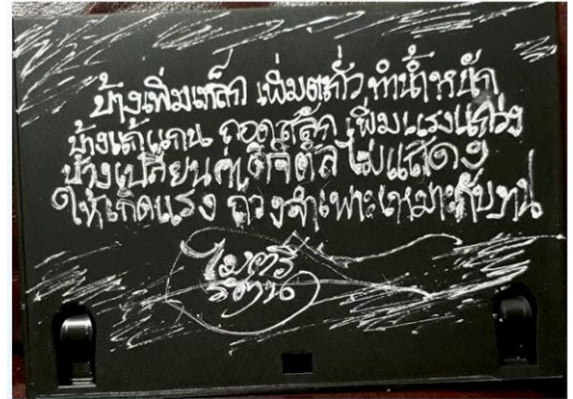 บ้างเพิ่มเหล็ก เพิ่มตะกั่ว ทำน้ำหนัก
บ้างแก้แกน ถอดสลัก เพิ่มแรงแกว่ง
บ้างเปลี่ยนค่าดิจิตัล ไม่แสดง
ให้เกิดแรง ถ่วงจำเพาะเหมาะกับ
ไมตรี